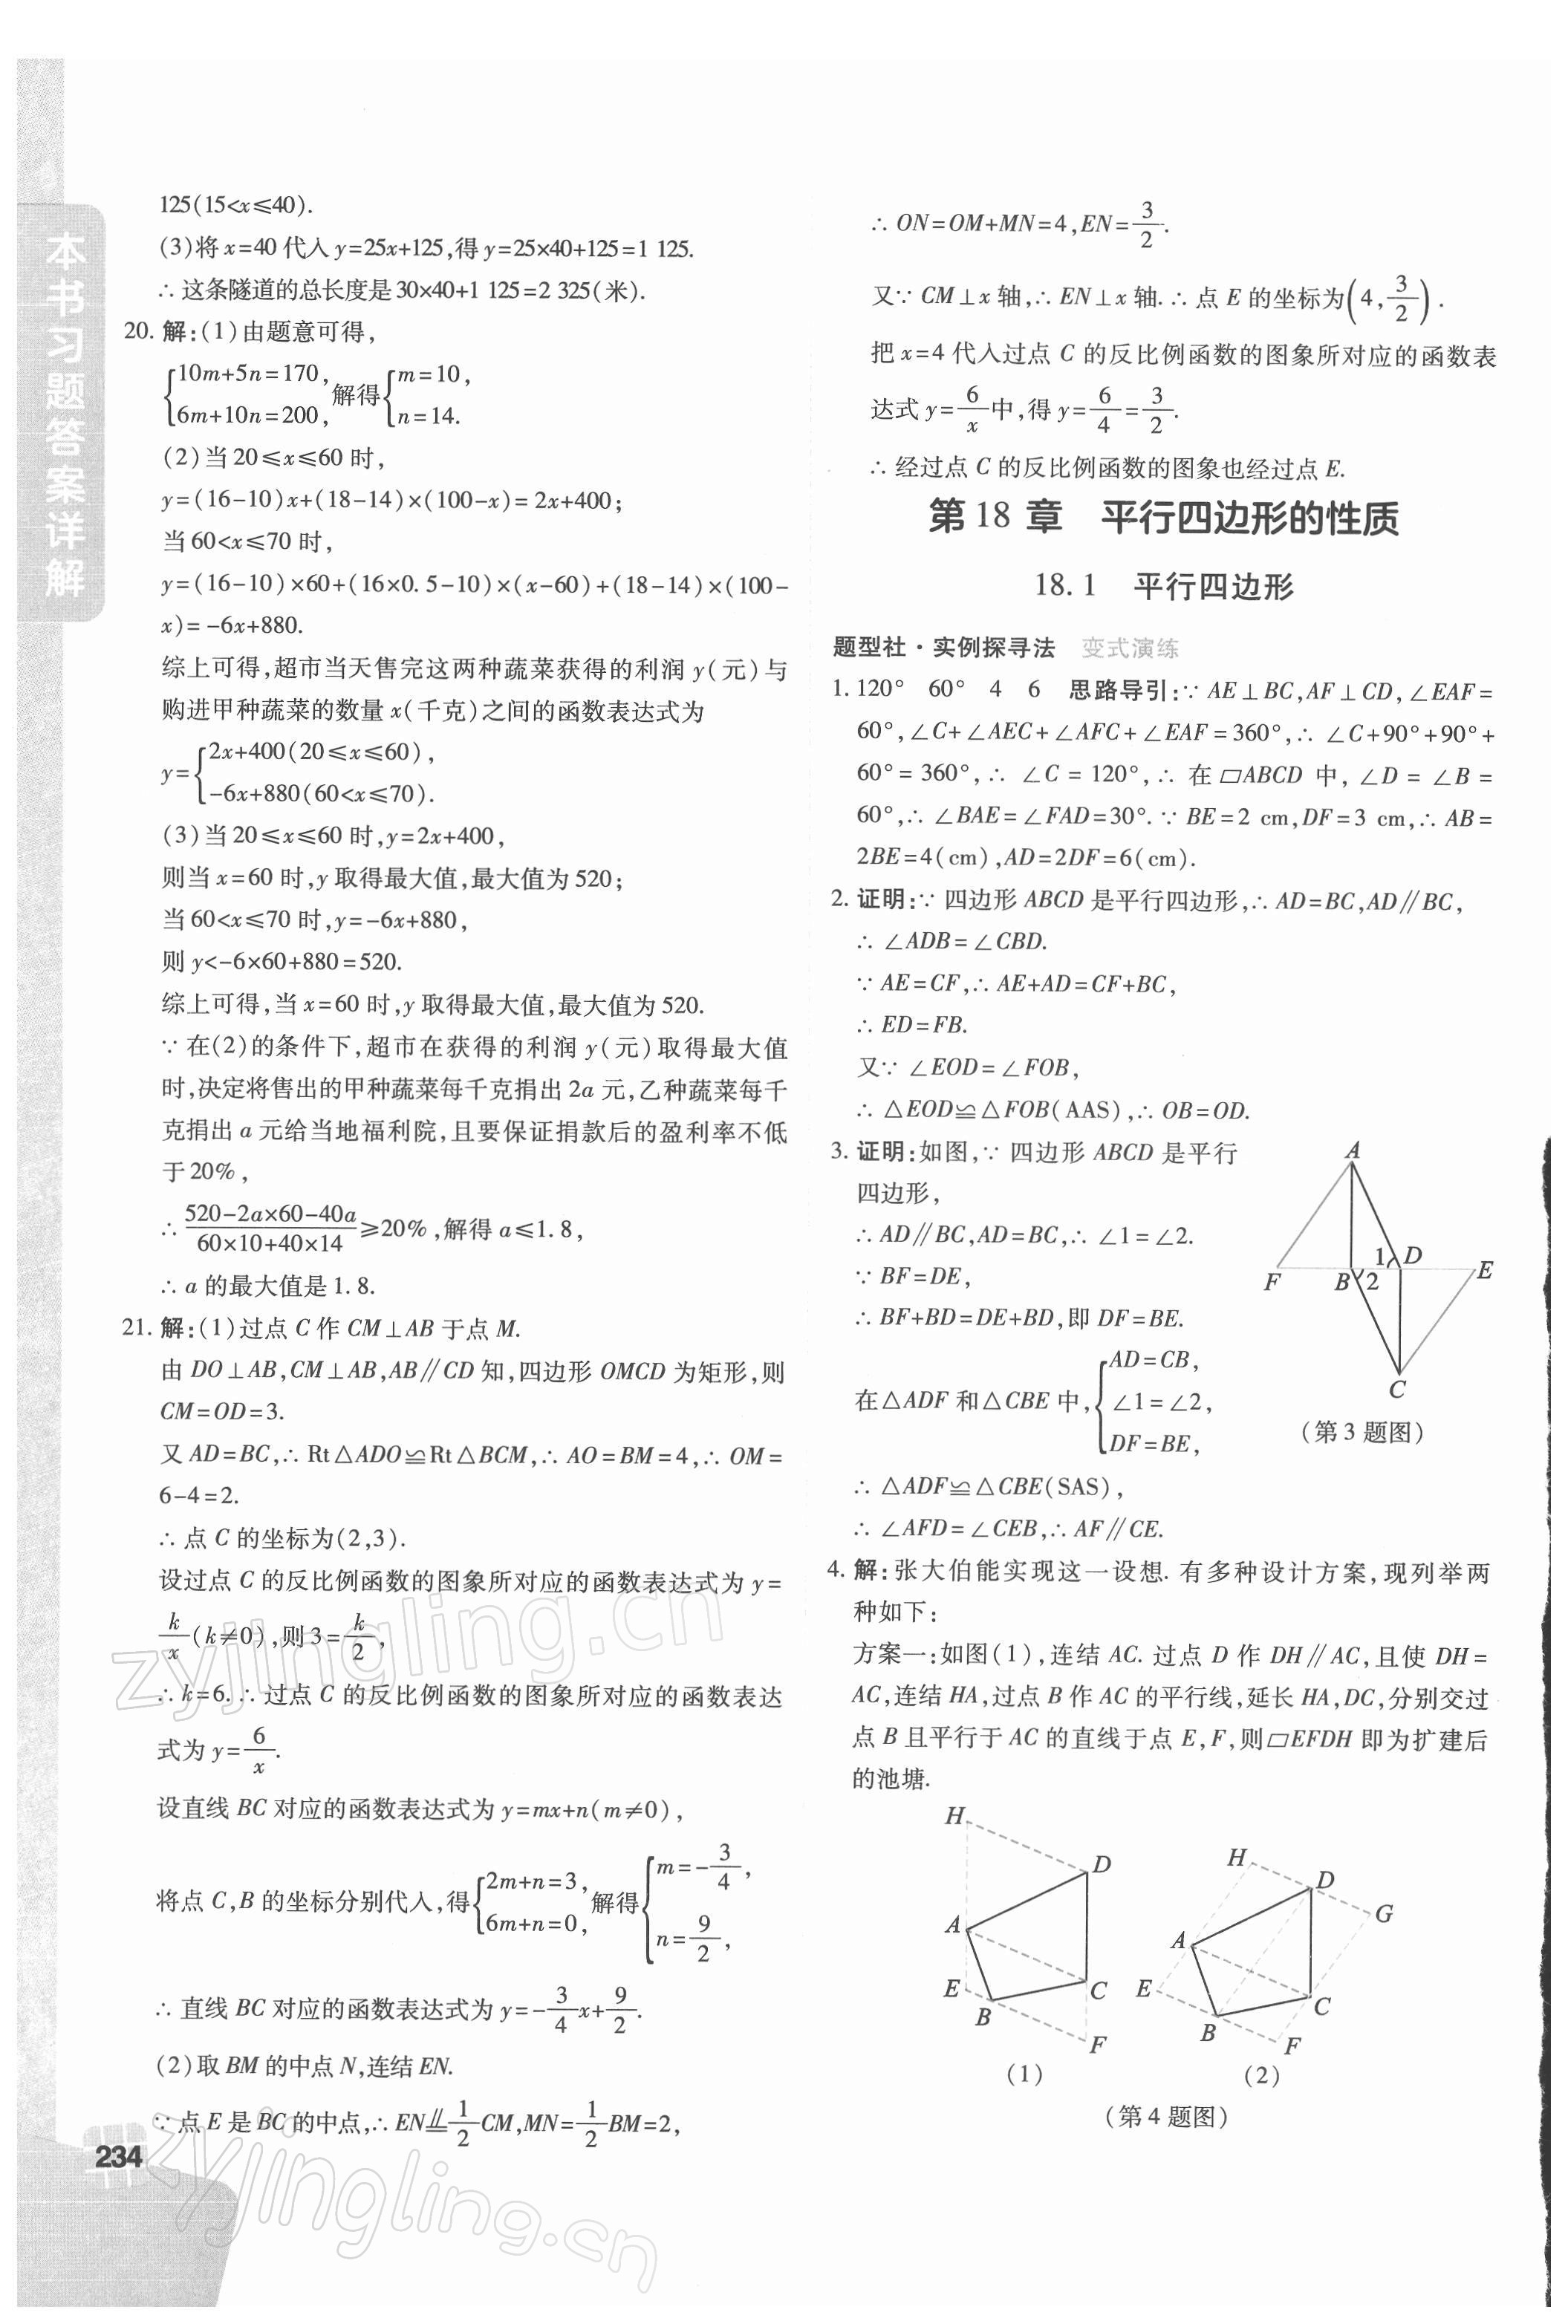 本书习题答案详解
125(15<x≤40).
(3)将 x=40 代入 y=25x+125,得 y=25×40+125=1 125.
∴ 这条隧道的总长度是 30×40+1 125=2 325(米).
20. 解:(1)由题意可得,
{10m+5n=170, 6m+10n=200, 解得 {m=10, n=14.
(2)当 20≤x≤60 时,
y=(16-10)x+(18-14)×(100-x)=2x+400;
当 60<x≤70 时,
y=(16-10)×60+(16×0.5-10)×(x-60)+(18-14)×(100-
x)=-6x+880.
综上可得,超市当天售完这两种蔬菜获得的利润 y(元)与
购进甲种蔬菜的数量 x(千克)之间的函数表达式为
y={2x+400(20≤x≤60), -6x+880(60<x≤70).
(3)当 20≤x≤60 时,y=2x+400,
则当 x=60 时,y 取得最大值,最大值为 520;
当 60<x≤70 时,y=-6x+880,
则 y<-6×60+880=520.
综上可得,当 x=60 时,y 取得最大值,最大值为 520.
∵ 在(2)的条件下,超市在获得的利润 y(元)取得最大值
时,决定将售出的甲种蔬菜每千克捐出 2a 元,乙种蔬菜每千
克捐出 a 元给当地福利院,且要保证捐款后的盈利率不低
于 20%,
∴ (520-2a×60-40a)/(60×10+40×14)≥20%,解得 a≤1.8,
∴ a 的最大值是 1.8.
21. 解:(1)过点 C 作 CM⊥AB 于点 M.
由 DO⊥AB,CM⊥AB,AB∥CD 知,四边形 OMCD 为矩形,则
CM=OD=3.
又 AD=BC,∴ Rt△ADO≌Rt△BCM,∴ AO=BM=4,∴ OM=
6-4=2.
∴ 点 C 的坐标为(2,3).
设过点 C 的反比例函数的图象所对应的函数表达式为 y=
k/x(k≠0),则 3=k/2,
∴ k=6.∴ 过点 C 的反比例函数的图象所对应的函数表达
式为 y=6/x.
设直线 BC 对应的函数表达式为 y=mx+n(m≠0),
将点 C,B 的坐标分别代入,得{2m+n=3, 6m+n=0, 解得{m=-3/4, n=9/2,
∴ 直线 BC 对应的函数表达式为 y=-3/4x+9/2.
(2)取 BM 的中点 N,连结 EN.
∵ 点 E 是 BC 的中点,∴ EN∥=1/2CM,MN=1/2BM=2,
234
∴ ON=OM+MN=4,EN=3/2.
又∵ CM⊥x 轴,∴ EN⊥x 轴.∴ 点 E 的坐标为(4,3/2).
把 x=4 代入过点 C 的反比例函数的图象所对应的函数表
达式 y=6/x 中,得 y=6/4=3/2.
∴ 经过点 C 的反比例函数的图象也经过点 E.
第 18 章 平行四边形的性质
18.1 平行四边形
题型社·实例探寻法 变式演练
1. 120° 60° 4 6 思路导引:∵ AE⊥BC,AF⊥CD,∠EAF=
60°,∠C+∠AEC+∠AFC+∠EAF=360°,∴ ∠C+90°+90°+
60°=360°,∴ ∠C=120°,∴ 在▱ABCD 中,∠D=∠B=
60°,∴ ∠BAE=∠FAD=30°.∵ BE=2 cm,DF=3 cm,∴ AB=
2BE=4(cm),AD=2DF=6(cm).
2. 证明:∵ 四边形 ABCD 是平行四边形,∴ AD=BC,AD∥BC,
∴ ∠ADB=∠CBD.
∵ AE=CF,∴ AE+AD=CF+BC,
∴ ED=FB.
又∵ ∠EOD=∠FOB,
∴ △EOD≌△FOB(AAS),∴ OB=OD.
3. 证明:如图,∵ 四边形 ABCD 是平行
四边形,
∴ AD∥BC,AD=BC,∴ ∠1=∠2.
∵ BF=DE,
∴ BF+BD=DE+BD,即 DF=BE.
在△ADF 和△CBE 中,{AD=CB, ∠1=∠2, DF=BE,
∴ △ADF≌△CBE(SAS),
∴ ∠AFD=∠CEB,∴ AF∥CE.
A
1 D
F B 2 E
C
(第 3 题图)
4. 解:张大伯能实现这一设想.有多种设计方案,现列举两
种如下:
方案一:如图(1),连结 AC.过点 D 作 DH∥AC,且使 DH=
AC,连结 HA,过点 B 作 AC 的平行线,延长 HA,DC,分别交过
点 B 且平行于 AC 的直线于点 E,F,则▱EFDH 即为扩建后
的池塘.
H
D
A
E C
B
F
(1)
H
D
G
A
E
C
B
F
(2)
(第 4 题图)
zyjingling.cn
zyjingling.cn